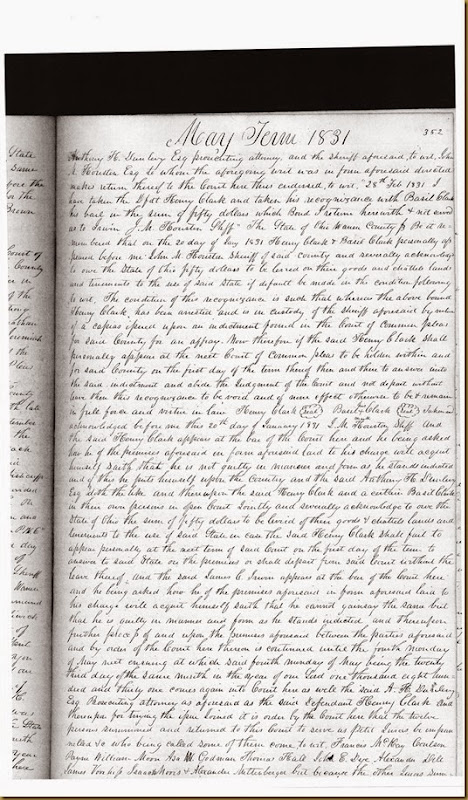 352
May Term 1831
Anthony H. Dunlevy Esq prosecuting attorney, and the sheriff aforesaid, to wit, John
M. Houston Esq to whom the aforegoing writ was in form aforesaid directed
makes return thereof to the Court here thus endorsed, to wit. 28th Feb 1831 I
have taken the Dfdt Henry Clark and taken his recognizance with Basil Clark
his bail in the sum of fifty dollars which Bond I return herewith &
J. M. Houston Shff The State of Ohio Warren County Be it re
membered that on the 20 day of Jany 1831 Henry Clark & Basil Clark personally ap
peared before me John M Houston Sheriff of said County and severally acknowledge
to owe the State of Ohio fifty dollars to be levied on their goods and chattels lands
and tenements to the use of said State if default be made in the condition following
to wit. The condition of this recognizance is such that whereas the above bound
Henry Clark has been arrested and is in custody of the Sheriff aforesaid by virtue
of a capias issued upon an indictment found in the Court of Common pleas
for said County for an affray. Now therefore if the said Henry Clark shall
personally appear at the next Court of Common pleas to be holden within and
for said County on the first day of the term thereof then and there to answer unto
the said indictment and abide the Judgment of the Court and not depart without
leave then this recognizance to be void and of none effect otherwise to be & remain
in full force and virtue in law Henry Clark Seal Basil Clark Seal
acknowledged before me this 20th day of January 1831 J. M. Houston Shff and
the said Henry Clark appears at the bar of the Court here and he being asked
how he of the premises aforesaid in form aforesaid laid to his charge will acquit
himself saith that he is not guilty in manner and form as he stands indicted
and of this he puts himself upon the Country and the said Anthony H. Dunlevy
Esq doth the like and thereupon the said Henry Clark and a certain Basil Clark
in their own persons in open Court Jointly and severally acknowledge to owe the
State of Ohio the sum of fifty dollars to be levied of their goods & chattels lands and
tenements to the use of said State in case the said Henry Clark shall fail to
appear personally at the next term of said Court on the first day of the term to
answer to said State on the premises or shall depart from said Court without the
leave thereof, and the said James C Irwin appears at the bar of the Court here
and he being asked how he of the premises aforesaid in form aforesaid laid to
his charge will acquit himself saith that he cannot gainsay the same but
that he is guilty in manner and form as he stands indicted, and thereupon
further process of and upon the premises aforesaid between the parties aforesaid
and by order of the Court here thereon is continued until the fourth Monday
of May next ensuing at which said fourth monday of May being the twenty
third day of the same month in the year of our Lord one thousand eight hun-
dred and thirty one comes again into Court here as well the said A. H. Dunlevy
Esq Prosecuting attorney as aforesaid as the said Defendant Henry Clark and
thereupon for trying the issue Joined it is order by the Court here that the twelve
persons summoned and returned to this Court to serve as petit Jurors be impan
neled &c who being called some of them come to wit, Francis McKay Coulson
Payne William Moon Asa W Godman Thomas Hall John E. Dye Alexander Dill
James Voohis Isaac Morris & Alexander Nettenberger but because the other Jurors sum